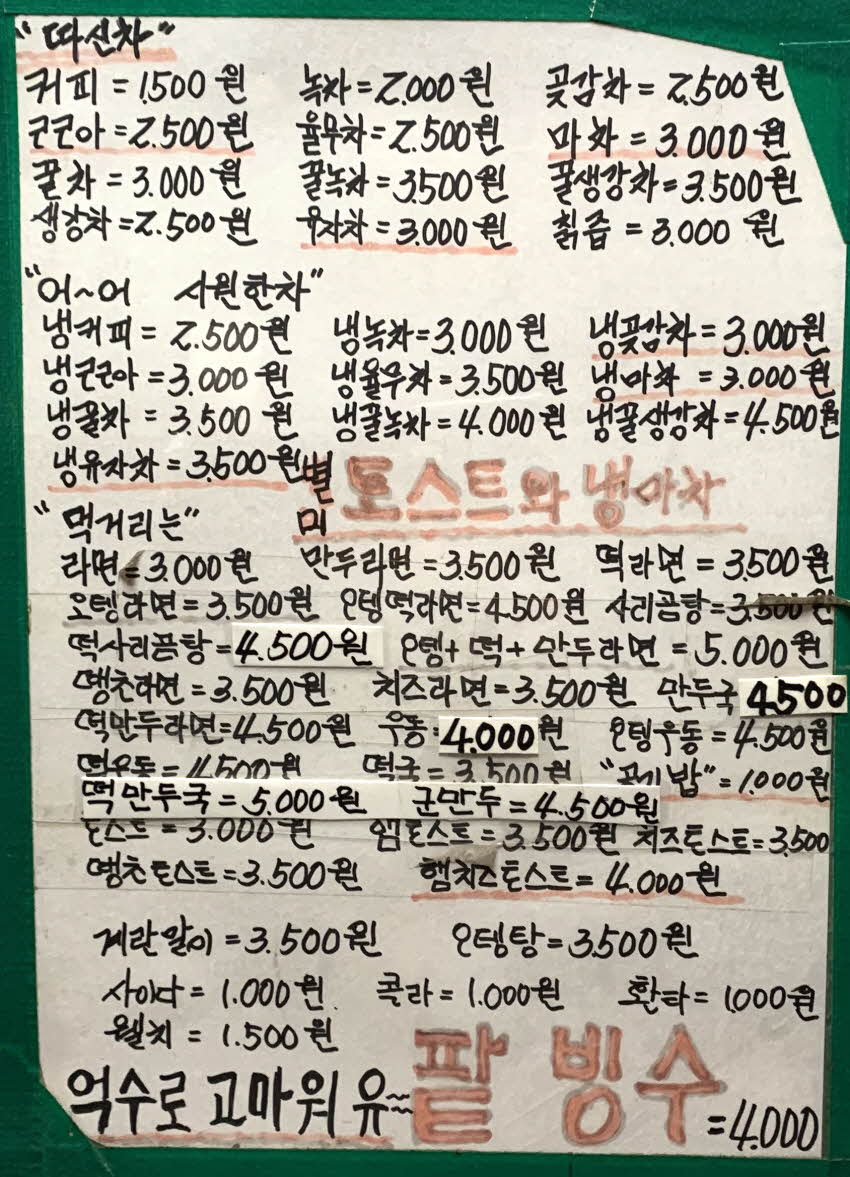 "따신차"
커피 = 1,500원 녹차 = 2.000원 곶감차 = 2,500원
코코아 = 2.500원 율무차 = 2.500원 마차 = 3.000원
꿀차 = 3.000원 꿀녹차 = 3,500원 꿀생강차 = 3.500원
생강차 = 2.500원 유자차 = 3.000원 칡즙 = 3.000원
"어~어 시원한차"
냉커피 = 2.500원 냉녹차 = 3.000원 냉곶감차 = 3.000원
냉코코아 = 3.000원 냉율무차 = 3.500원 냉마차 = 3.000원
냉꿀차 = 3.500원 냉꿀녹차 = 4.000원 냉꿀생강차 = 4.500원
냉유자차 = 3,500원
별미 토스트와 냉마차
"먹거리는"
라면 = 3.000원 만두라면 = 3.500원 떡라면 = 3,500원
오뎅라면 = 3.500원 오뎅떡라면 = 4.500원 사리곰탕 = 3,500원
떡사리곰탕 = 4.500원 오뎅 + 떡 + 만두라면 = 5.000원
땡초라면 = 3.500원 치즈라면 = 3.500원 만두국 4.500
떡만두라면 = 4.500원 우동 = 4.000원 오뎅우동 = 4.500원
떡우동 = 4.500원 떡국 = 3.500원 "공기밥" = 1.000원
떡만두국 = 5.000원 군만두 = 4.500원
토스트 = 3.000원 햄토스트 = 3.500원 치즈토스트 = 3,500
땡초토스트 = 3.500원 햄치즈토스트 = 4.000원
계란말이 = 3.500원 오뎅탕 = 3.500원
사이다 = 1.000원 콜라 = 1.000원 환타 = 1,000원
웰치 = 1.500원
억수로 고마워유~~ 팥빙수 = 4.000